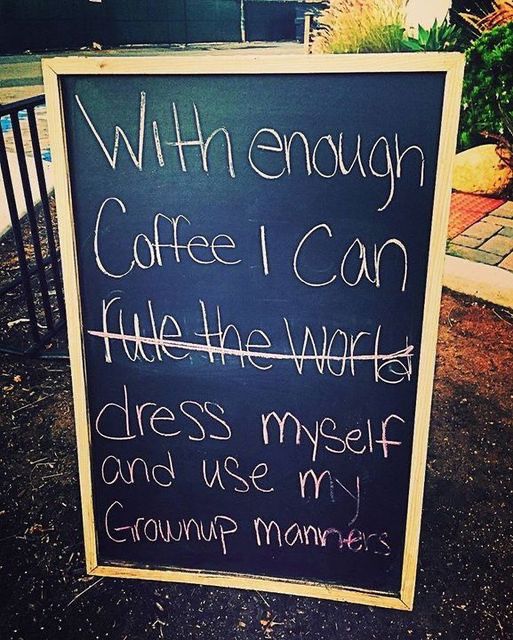 With enough
Coffee I Can
rule the World
dress myself
and use my
Grownup manners